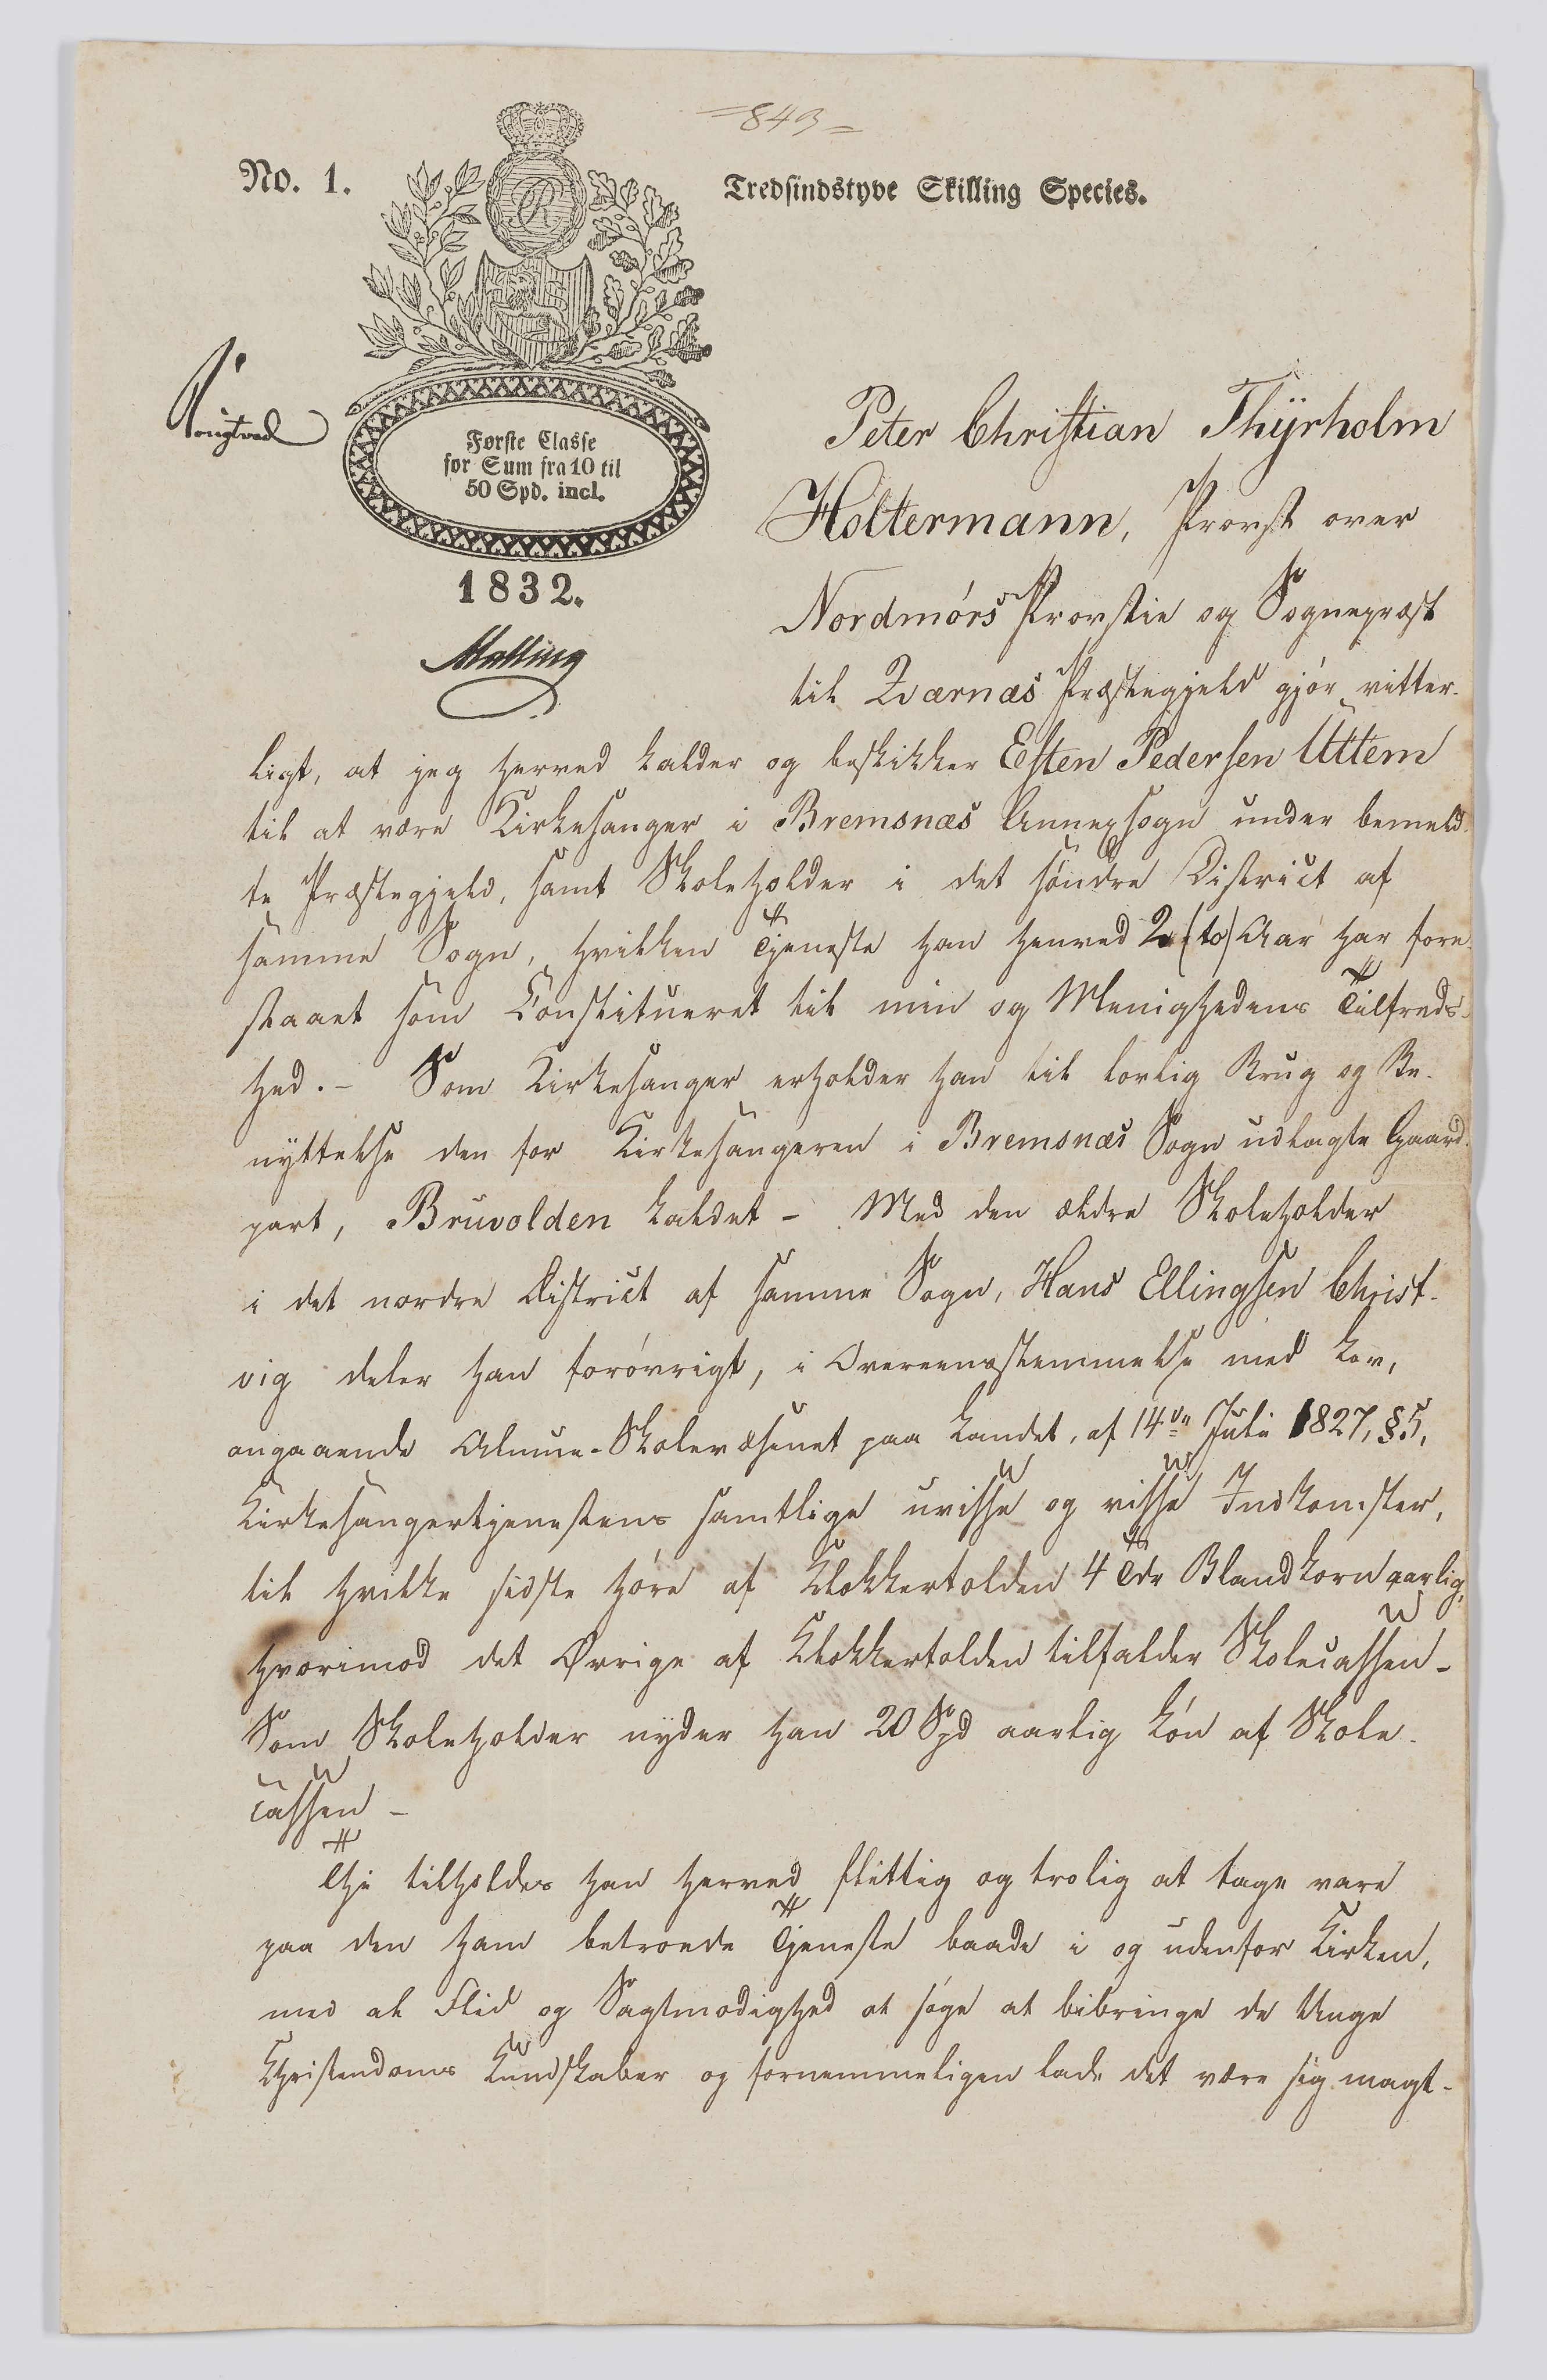 =843=
No. 1.
Tredsindstyve Skilling Species.
R
Første Classe
for Sum fra 10 til
50 Spd. incl.
1832.
Malling
Peter Christian Thyrholm
Holtermann, Provst over
Nordmørs Provstie og Sognepræst
til Qværnæs Præstegjeld gjör vitter-
ligt, at jeg herved kalder og beskikker Esten Pedersen Uttem
til at være Kirkesanger i Bremsnæs Annexsogn under bemeld-
te Præstegjeld, samt Skoleholder i det söndre District af
samme Sogn, hvilken Tjeneste han henved 2 (to) Aar har fore-
staaet som Constitueret til min og Menighedens Tilfreds-
hed. - Som Kirkesanger erholder han til lovlig Brug og Be-
nyttelse den for Kirkesangeren i Bremsnæs Sogn udlagte Gaard-
part, Bruvolden kaldet - Med den ældre Skoleholder
i det nordre District af samme Sogn, Hans Ellingsen Christ-
vig deler han forövrigt, i Overeensstemmelse med Lov,
angaaende Almue-Skolevæsenet paa Landet, af 14de Juli 1827, § 5,
Kirkesangertjenestens samtlige uvisse og visse Indkomster,
til hvilke sidste höre af Klokkertolden 4 Tdr Blandkorn aarlig,
hvorimod det Øvrige af Klokkertolden tilfalder Skolecassen -
Som Skoleholder nyder han 20 Spd aarlig Lön af Skole-
cassen -
Thi tilholdes han herved flittig og trolig at tage vare
paa den ham betroede Tjeneste baade i og udenfor Kirken,
med al Flid og Sagtmodighed at söge at bibringe de Unge
Christendoms Kundskaber og fornemmeligen lade det være sig magt-